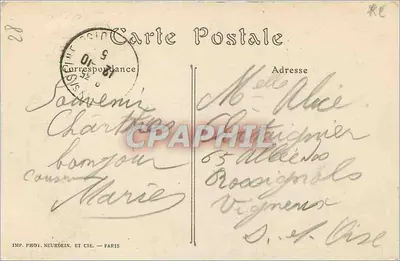 28
Carte Postale
Correspondance
Adresse
Souvenir
Chartres
bonjour
Marie
Melle Alice
65 Allée des
Rossignols
Vigneux
S. et Oise
CPAPHIL
IMP. PHOT. NEURDEIN, ET CIE. — PARIS